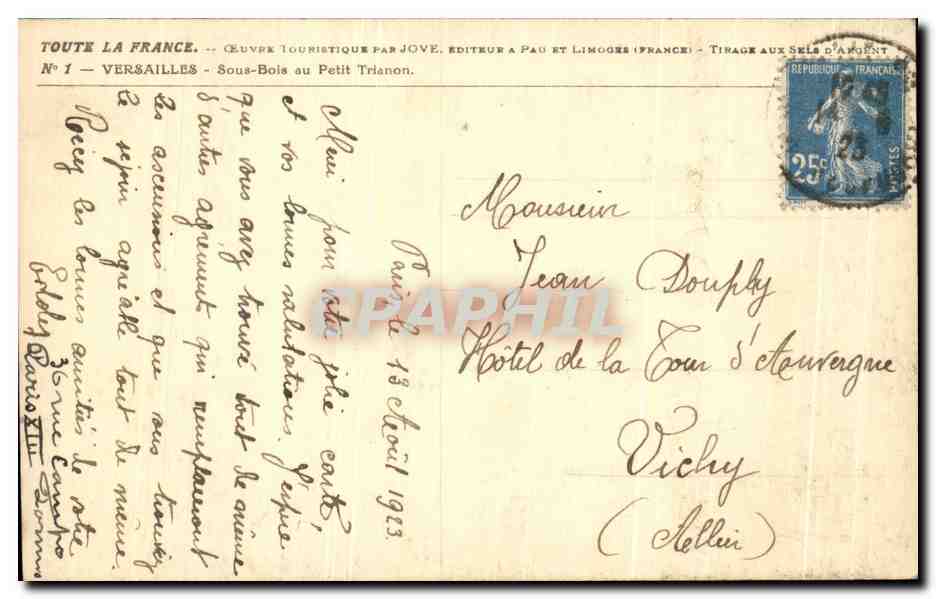 TOUTE LA FRANCE. -- ŒUVRE TOURISTIQUE PAR JOVE, EDITEUR A PAU ET LIMOGES (FRANCE) - TIRAGE AUX SELS D'ARGENT
Nº 1 — VERSAILLES - Sous-Bois au Petit Trianon.
REPUBLIQUE FRANÇAISE
25c
POSTES
23
Paris le 13 Août 1923
Merci pour votre jolie carte
et vos bonnes salutations. J'espère
que vous avez trouvé tout de même
d'autres agrément qui remplaceront
les ascensions et que vous trouvez
le séjour agréable tout de même.
Recey les bonnes amitiés de votre
36 rue Campo
Paris XIII
Monsieur
Jean Douply
Hôtel de la Tour d'Auvergne
Vichy
(Allier)
CPAPHIL